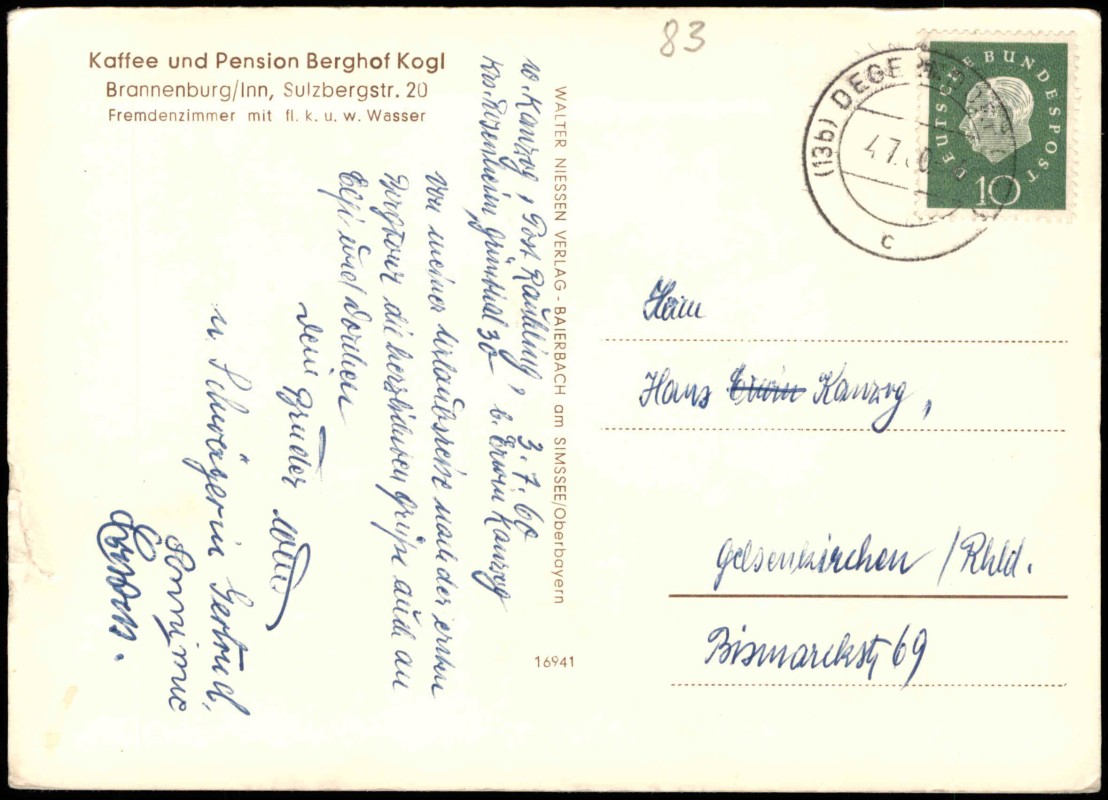 83
Kaffee und Pension Berghof Kogl
Brannenburg/Inn, Sulzbergstr. 20
Fremdenzimmer mit fl. k. u. w. Wasser
W. Kanzog, Post Raubling, 3.7.60
Krs. Rosenheim, Grünthal 30 b. Erwin Kanzog
Von meiner Urlaubsreise nach der ersten
Bergtour die herzlichsten Grüße auch an
und
Dein Bruder Willi
u. Schwägerin Gertrud,
WALTER NIESSEN VERLAG - BAIERBACH am SIMSSEE/Oberbayern
16941
(13b) DEGE
4.7. 0
c
DEUTSCHE BUNDESPOST
10
Hans Erwin Kanzog,
Gelsenkirchen /Rhld.
Bismarckstr 69